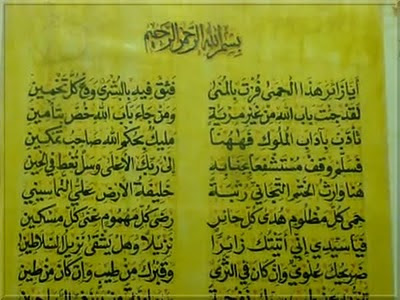 بسم الله الرحمن الرحيم
أيا زائر هذا الحمى فزت بالمنى فبق فيه بالبشرى ودع كل تخمين
لقد جئت باب الله من غير مرية ومن جاء باب الله خص بتأمين
تأدب بآداب الملوك فههنا مليك بحكم الله صاحب تمكين
فسلم وقف مستشفعا ببابه إلى ربك الأعلى وسل تعط في الحين
هنا وارث الختم التجاني رتبة خليفة الأرض علي التماسيني
حمى كل مظلوم هدى كل حائر رضى كل مهموم غنى كل مسكين
فيا سيدي إني أتيتك زايرا نزيلا وهل يشقى نزيل السلاطين
ضريحك علوي وإن كان في الثرى وقبرك من طيب وإن كان من طين